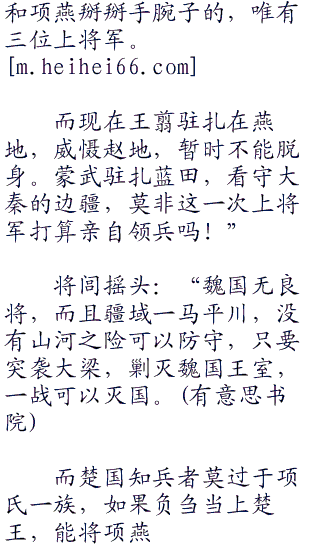 和项燕掰掰手腕子的，唯有
三位上将军。
[m.heihei66.com]
而现在王翦驻扎在燕
地，威慑赵地，暂时不能脱
身。蒙武驻扎蓝田，看守大
秦的边疆，莫非这一次上将
军打算亲自领兵吗！”
将闾摇头：“魏国无良
将，而且疆域一马平川，没
有山河之险可以防守，只要
突袭大梁，剿灭魏国王室，
一战可以灭国。(有意思书
院)
而楚国知兵者莫过于项
氏一族，如果负刍当上楚
王，能将项燕